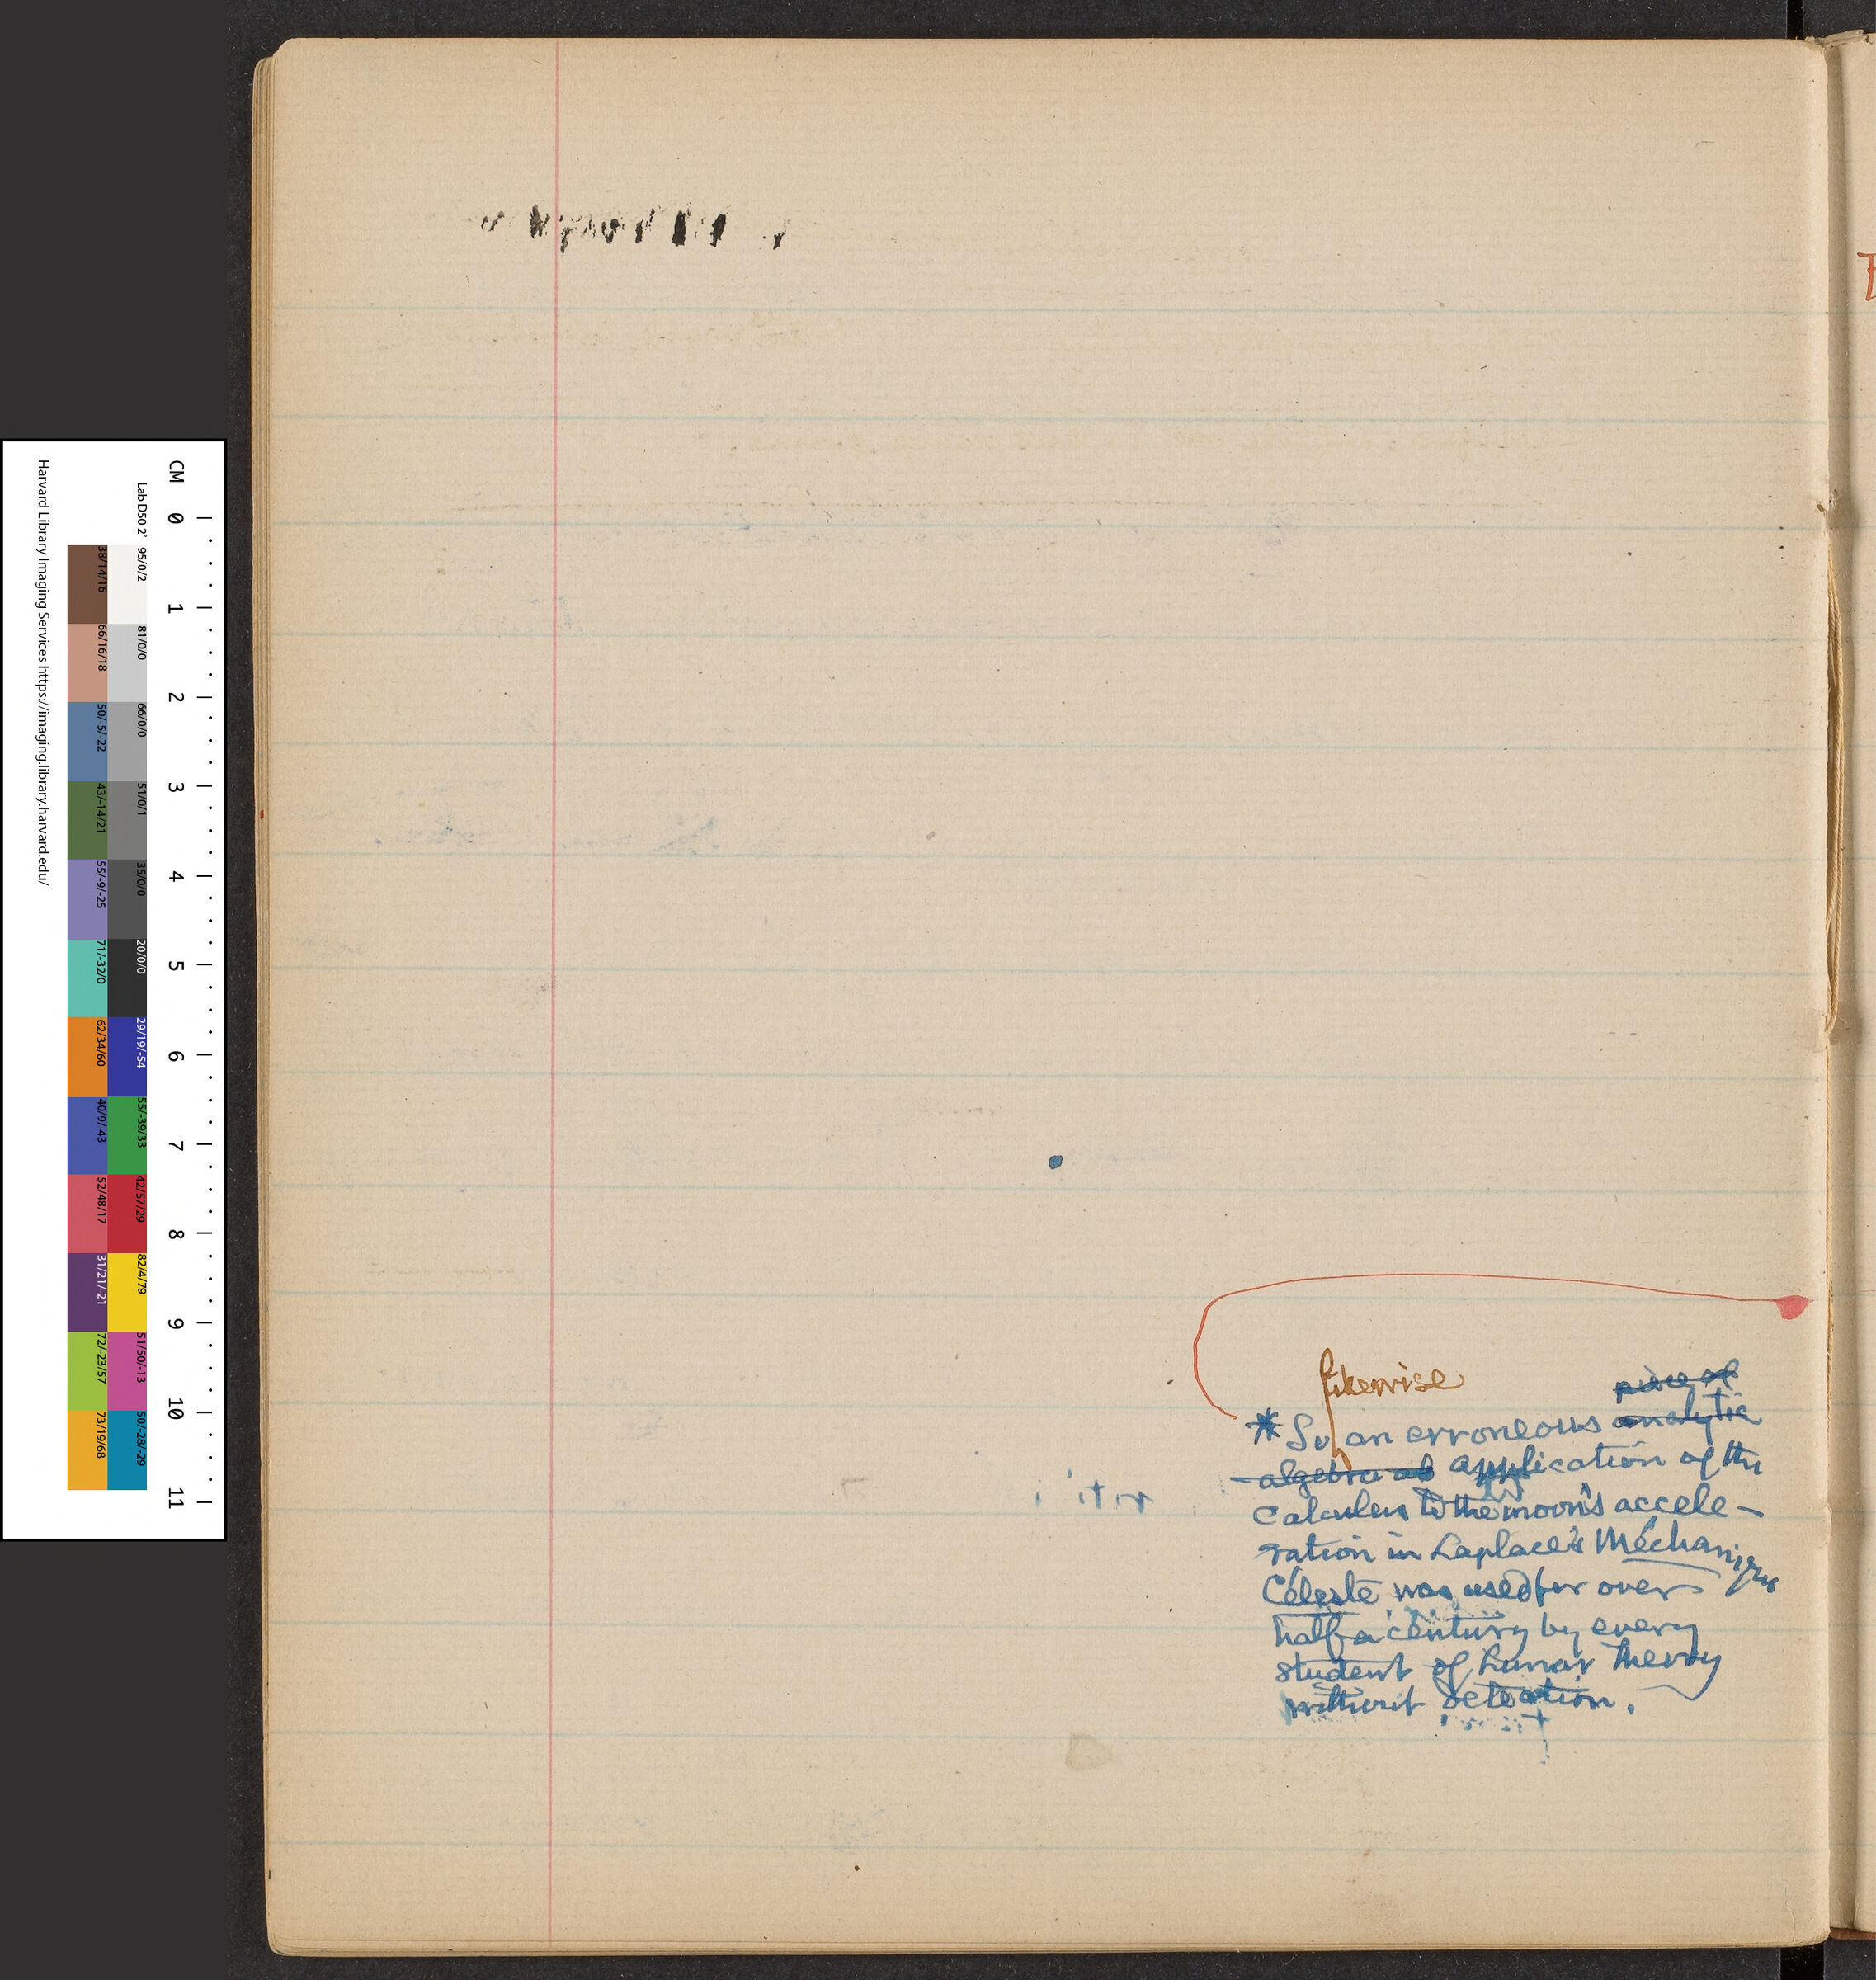 CM 0 1 2 3 4 5 6 7 8 9 10 11
Lab D50 2° 95/0/2 81/0/0 66/0/0 51/0/1 35/0/0 20/0/0 29/19/-54 55/-39/33 42/57/29 82/4/79 51/50/-13 50/-28/-29
38/14/16 66/16/18 50/-5/-22 43/-14/21 55/-9/-25 71/-32/0 62/34/60 40/9/-43 52/48/17 31/21/-21 72/-23/57 73/19/68
Harvard Library Imaging Services https://imaging.library.harvard.edu/
likewise piece of
* So an erroneous analytic
algebra application of the
calculus to the moon's accele-
ration in Laplace's Méchanique
Céleste was used for over
half a century by every
student of Lunar Theory
without detection.